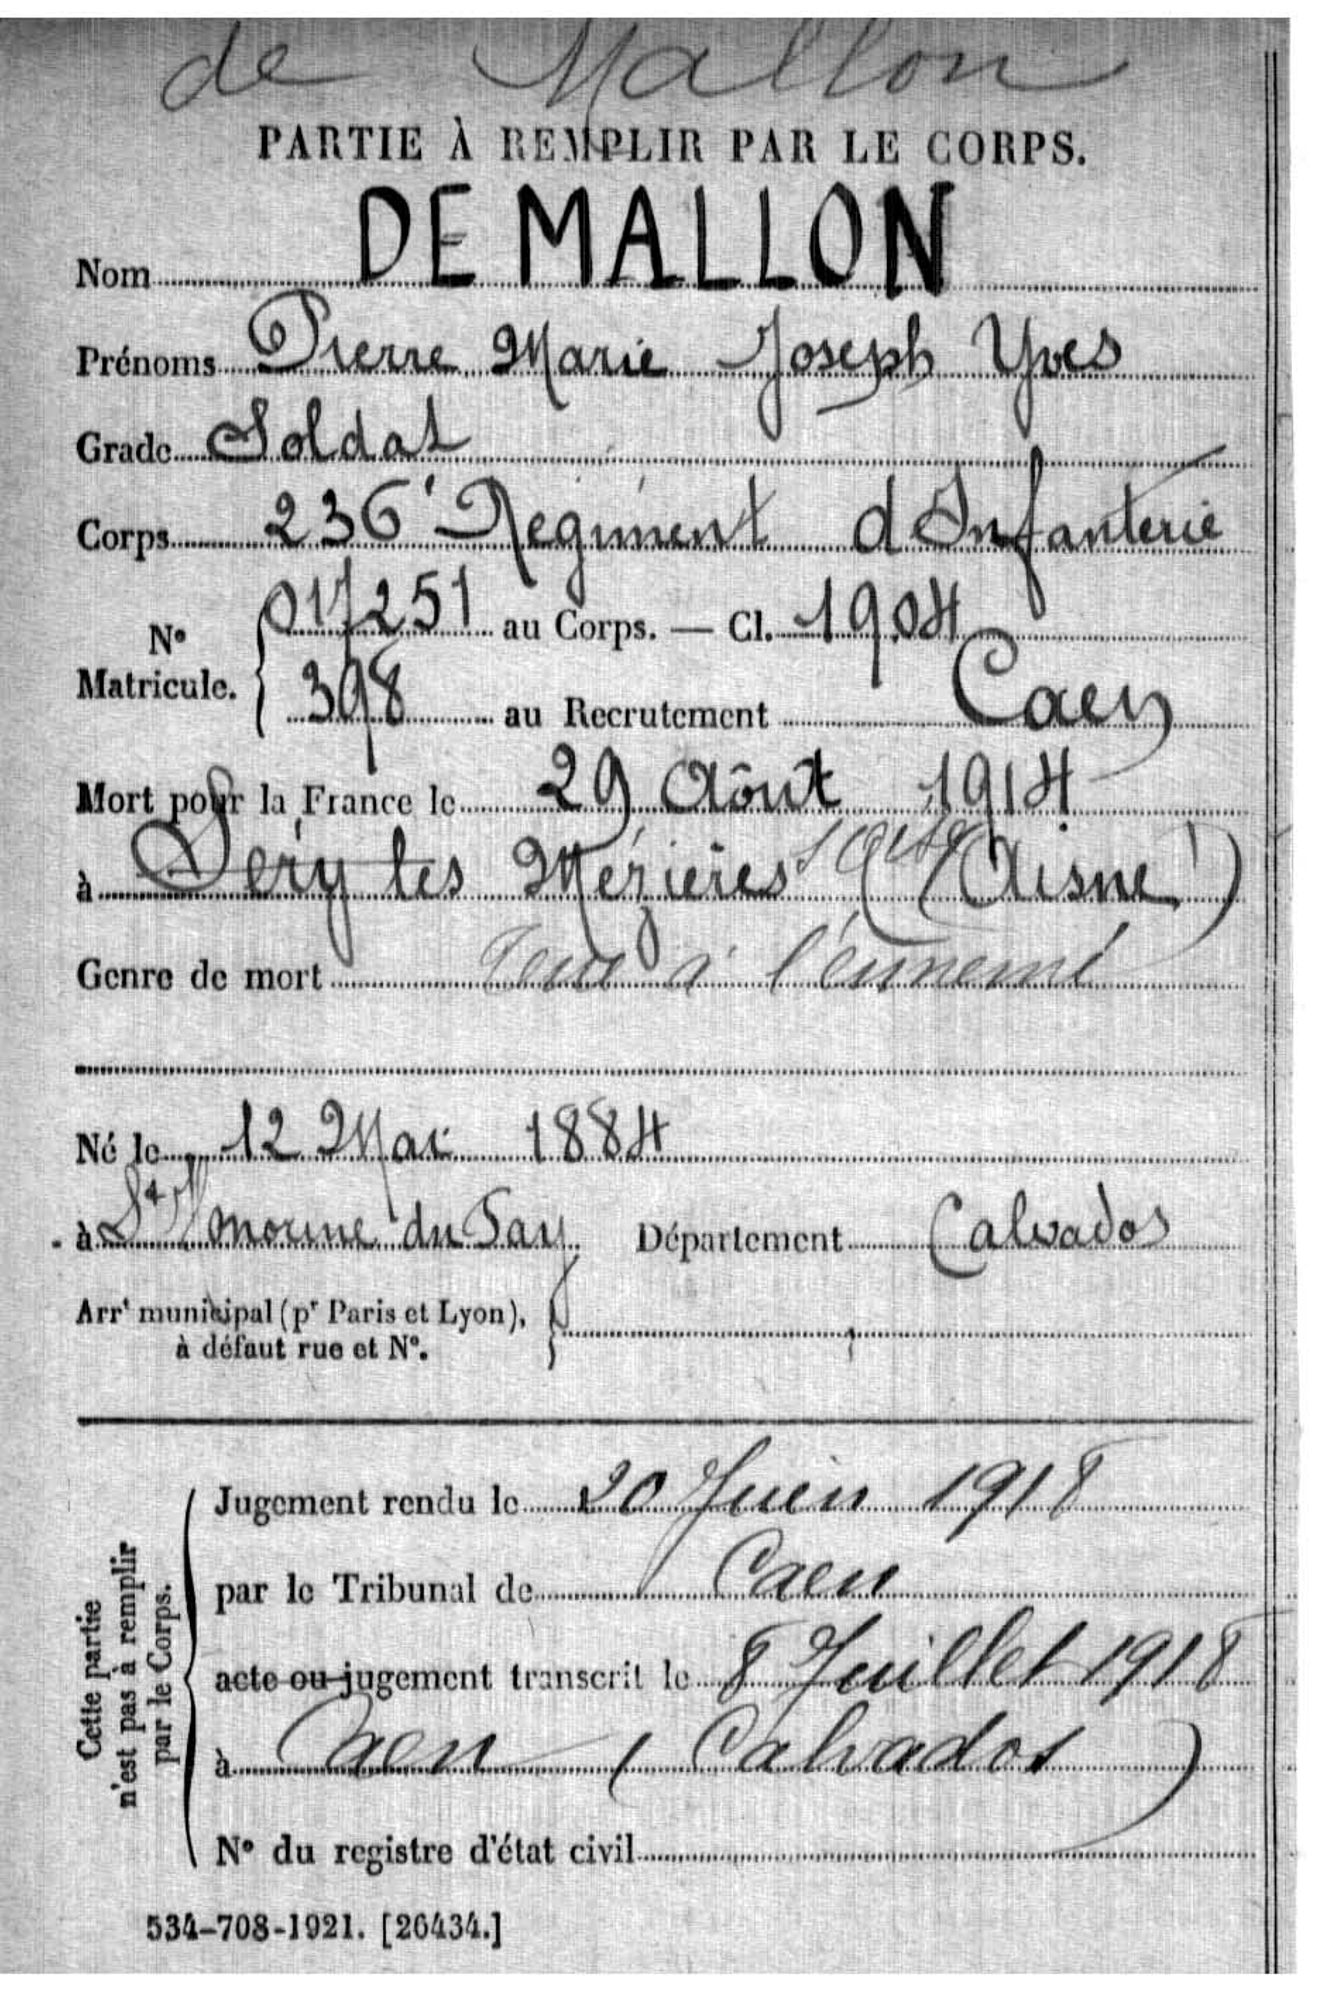 de Mallon
PARTIE À REMPLIR PAR LE CORPS.
Nom DE MALLON
Prénoms Pierre Marie Joseph Yves
Grade Soldat
Corps 236e Régiment d'Infanterie
N° Matricule. { 017251 au Corps. — Cl. 1904
398 au Recrutement Caen
Mort pour la France le 29 Août 1914
à Séry les Mézières (Aisne)
Genre de mort Tué à l'ennemi
Né le 12 Mai 1884
à St du Fay Département Calvados
Arrt municipal (pr Paris et Lyon),
à défaut rue et N°.
Cette partie
n'est pas à remplir
par le Corps.
Jugement rendu le 20 Juin 1918
par le Tribunal de Caen
acte ou jugement transcrit le 8 Juillet 1918
à Caen (Calvados)
N° du registre d'état civil
534-708-1921. [26434.]